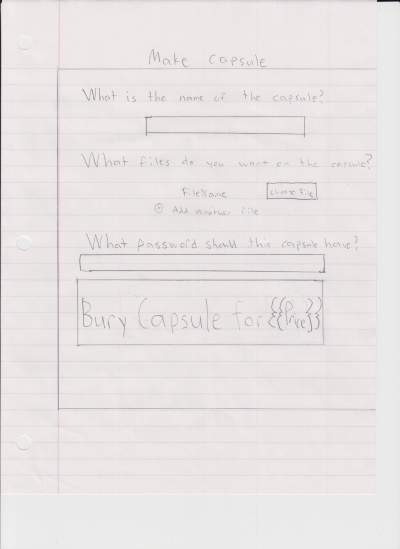 Make Capsule
What is the name of the capsule?
What files do you want on the capsule?
FileName choose File
+ Add another file
What password should this capsule have?
Bury Capsule for {{Price}}